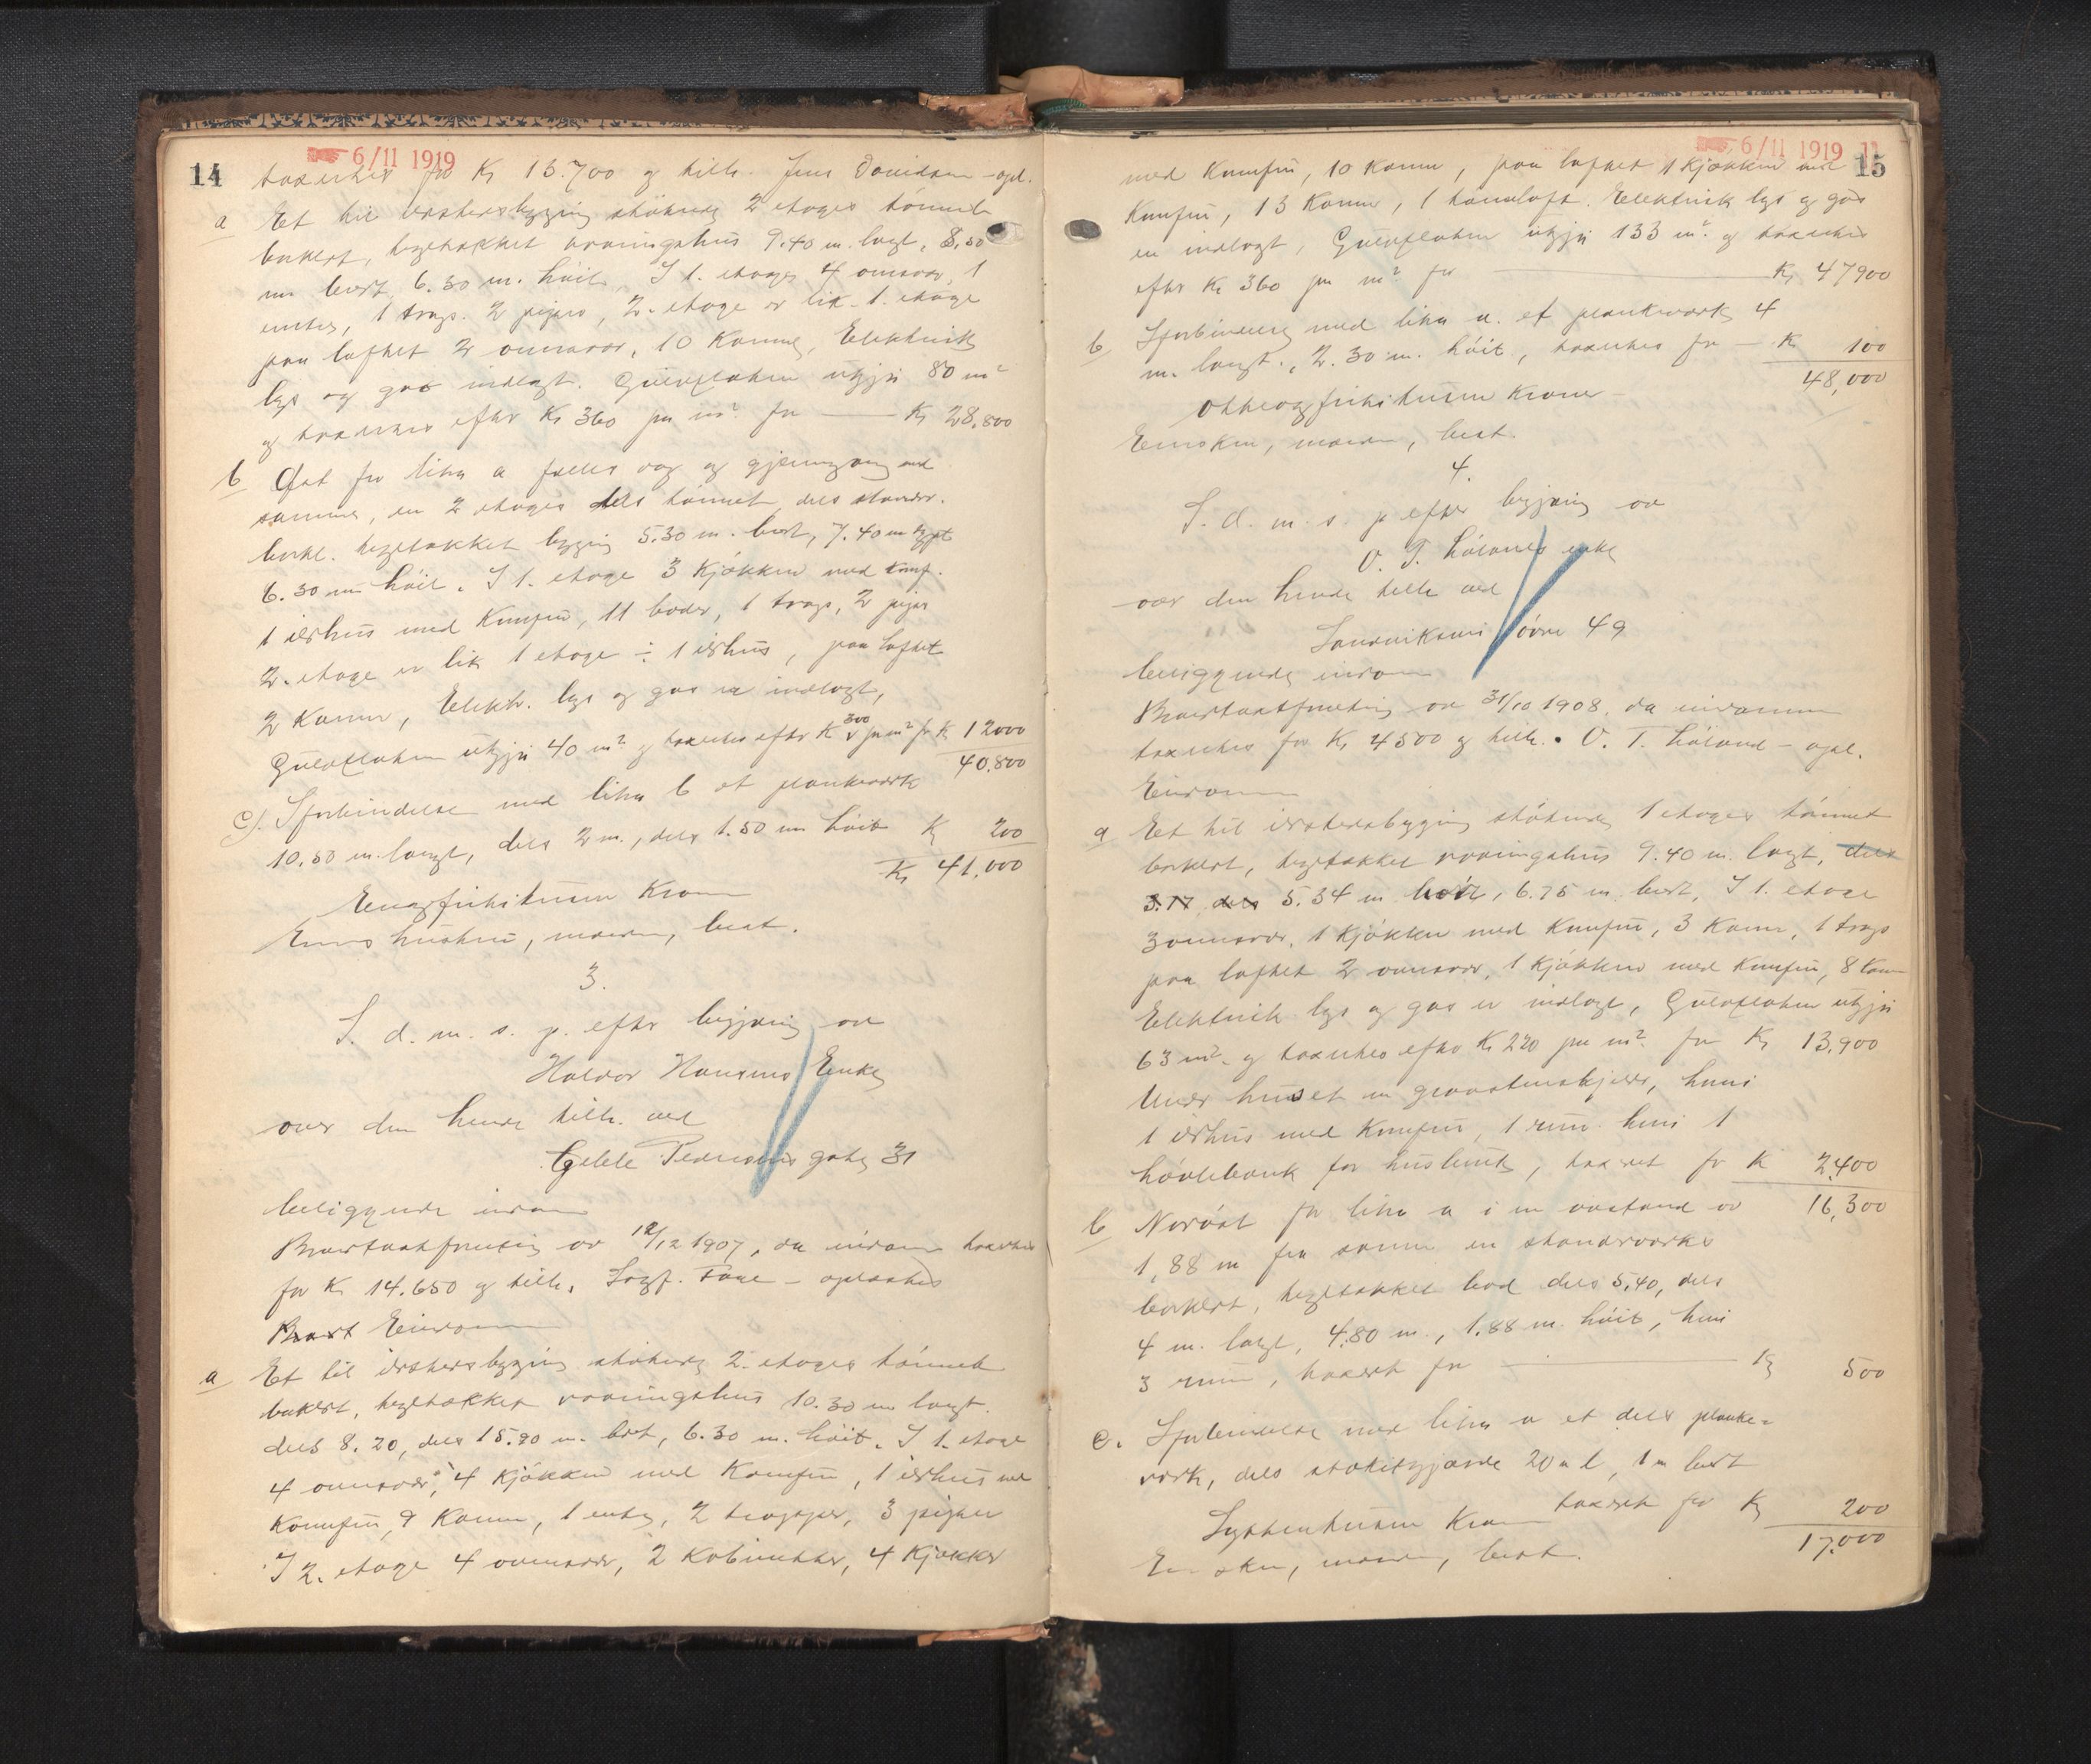 14
6/11 1919
taxertes for Kr 13.700 og tilh. Jens Davidsen - opl.
a Et til ildstedsbygning støtende 2 etages tømret
bukløst, teglstakket vaaningshus 9.40 m. langt, 8.50
m bredt 6.30 m. høit. I 1. etage 4 ovnsvær, 1
entre, 1 trap. 2 piper, 2. etage er lik 1. etage
paa loftet 2 ovnsvær, 10 Kammer, Elektrisk
lys og gas indlagt. Gulvflaten utgjør 80 m²
og taxertes efter Kr 360 pr m² for — Kr 28,800
b Øst for litra a fælles væg og gjennemgang med
samme, en 2 etages dels tømret dels stander.
bukl. teglstakket bygning 5.30 m. bredt, 7.40 m dypt
6.30 m høit. I 1. etage 3 Kjøkken med Komf.
1 ildhus med Komfur, 11 boder, 1 trap, 2 piper
2. etage er lik 1 etage ÷ 1 ildhus, paa loftet
2 Kammer, Elektr. lys og gas er indlagt,
Gulvflaten utgjør 40 m² og taxertes efter Kr 300 pr m² for Kr 12000
40.800
c). I forbindelse med litra b et plankeverk
10.50 m. langt, dels 2 m., dels 1.50 m høit Kr 200
Kr 41,000
Enogfirtitusen Kroner
Ems husbruk, maaned, best.
3.
S. d. m. s. p. efter begjæring av
Haldor Hansens Enke
over den hende tilh. ved
Gjelle Pedersens gate 31
beliggende eiendom
Branntaxtforretning av 12/12 1907, da eiendom taxertes
for Kr 14.650 og tilh. Sogf. Faae - oplæstes
Eiendommen
a Et til ildstedsbygning støtende 2. etages tømret
bukløst, teglstakket vaaningshus 10.30 m langt.
dels 8.20, dels 15.20 m. bredt, 6.30 m. høit. I 1. etage
4 ovnsvær, 4 Kjøkken med Komfur, 1 ildhus med
Komfur, 9 Kammer, 1 entre, 2 trapper, 3 piper
I 2. etage 4 ovnsvær, 2 Kabinetter, 4 Kjøkken
15
6/11 1919
med Komfur, 10 Kammer, paa loftet 1 Kjøkken med
Komfur, 13 Kammer, 1 haneloft. Elektrisk lys og gas
er indlagt, Gulvflaten utgjør 133 m². og taxertes
efter Kr 360 pr m² for — Kr 47900
b I forbindelse med litra a. et plankeverk 4
m. langt, 2.30 m. høit, taxertes for — Kr 100
48,000
Otteogfirtitusen Kroner
Eiersken, maaned, best.
4.
S. d. m. s. p efter begjæring av
O. T. Hølands enke
over den hende tilh. ved
Sandviksvei øvre 49
beliggende eiendom
Branntaxtforretning av 31/10 1908, da eiendommen
taxertes for Kr 4500 og tilh. O. T. Høland - opl.
Eiendommen
a Et til ildstedsbygning støtende 1 etages tømret
bukløst, teglstakket vaaningshus 9.40 m. langt, dels
3.77 dels 5.34 m høit, 6.75 m. bredt, I 1. etage
3 ovnsvær, 1 Kjøkken med Komfur, 3 Kammer, 1 trap
paa loftet 2 ovnsvær, 1 Kjøkken med Komfur, 8 Kammer
Elektrisk lys og gas er indlagt, Gulvflaten utgjør
63 m². og taxertes efter Kr 220 pr m² for Kr 13,900
Under huset en graastenskjelder, hvori
1 ildhus med Komfur, 1 rum. hvori 1
høvlebenk for husbruk, taxert for Kr 2,400
16,300
b Nordøst for litra a i en avstand av
1,88 m fra samme en standerverks
bukløst, teglstakket bod dels 5.40, dels
4 m. langt, 4.80 m., 1.88 m. høit, hvori
3 rum, taxert for — Kr 500
c. I forbindelse med litra a et dels planke-
verk, dels stakitgjærde 20 m l, 1 m bredt
taxert for Kr 200
17.000
Syttentusen Kroner
Eiersken, maaned, best.